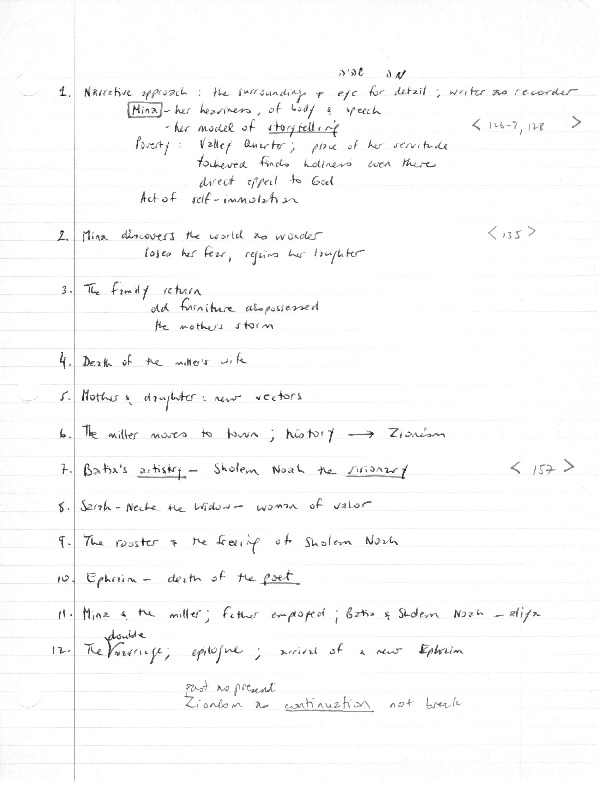 מה שהיה
1. Narrative approach : the surroundings + eye for detail ; writer as recorder
Mina - her heaviness, of body & speech
- her model of storytelling < 126-7, 128 >
Poverty : Valley Quarter ; place of her servitude
finds holiness even there
direct appeal to God
Act of self-immolation
2. Mina discovers the world as wonder < 135 >
loses her fear, regains her laughter
3. The Family return
old furniture dispossessed
the mother's storm
4. Death of the miller's wife
5. Mother & daughter : new vectors
6. The miller moves to town ; history → Zionism
7. Batia's artistry - Sholem Noah the visionary < 157 >
8. Sarah - Neche the Widow - woman of valor
9. The rooster + the freeing of Sholem Noah
10. Ephraim - death of the poet
11. Mina & the miller ; father employed ; Batia & Sholem Noah - aliya
12. The double marriage ; epilogue ; arrival of a new Ephraim
past as present
Zionism as continuation not break